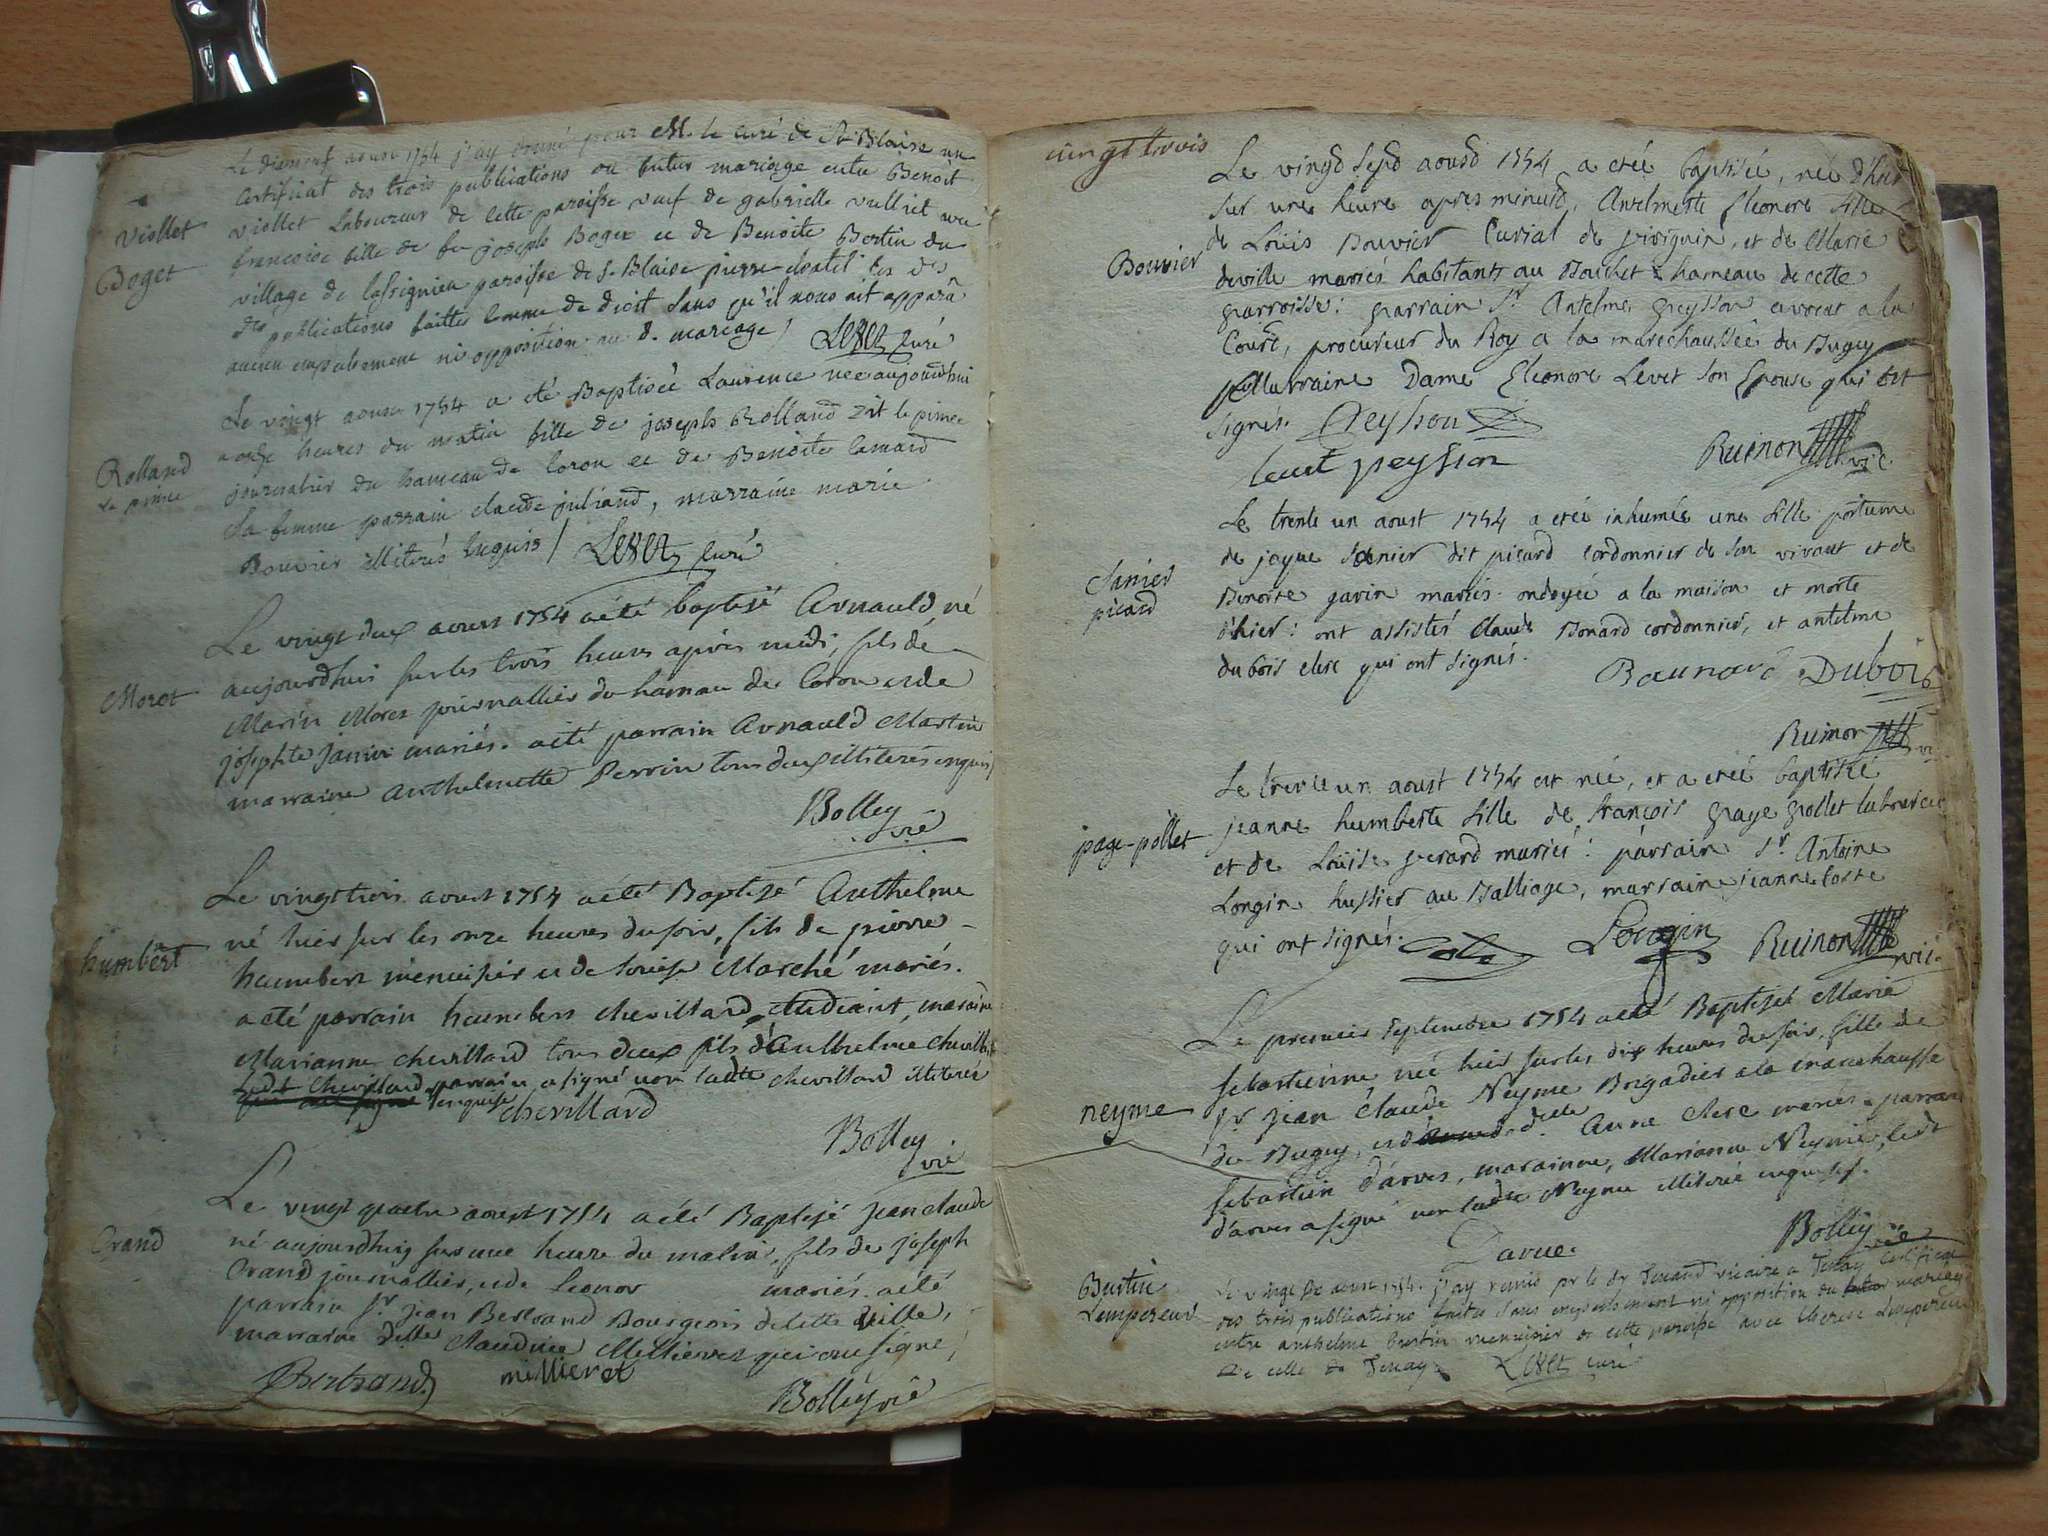 Viollet
Boget
Le dixneuf aoust 1754 j'ay donné pour M. le curé de St Blaise un
certificat des trois publications du futur mariage entre Benoit
viollet Laboureur de cette paroisse veuf de gabrielle vulliet avec
francoise fille de feu joseph Boget et de Benoite Bertin du
village de lassignieu paroisse de St Blaise pierre chatel les des
des publications faittes comme de droit sans qu'il nous ait apparu
aucun empechement ni opposition au d. mariage / Levet curé
Rolland
Le prince
Le vingt aoust 1754 a été Baptisée Laurence née aujourdhui
a onze heures du matin fille de joseph Rolland dit le prince
journalier du hameau de Coron et de Benoite
sa femme parrain claude juliand, marraine marie
Bouvier illiterés enquis / Levet curé
Moret
Le vingt deux aoust 1754 a été baptisé Arnauld né
aujourdhui sur les trois heures après midi, fils de
Marin Moret journallier du hameau de Coron et de
josephte janin mariés. a été parrain Arnauld Martin
marraine Anthelmette Perrin tous deux illiterés enquis /
Bolley
vic
humbert
Le vingt trois aoust 1754 a été Baptisé Anthelme
né hier sur les onze heures du soir, fils de pierre
humbert menuisier et de Louise Marché mariés.
a été parrain humbert chevillard etudiant, maraine
Marianne chevillard tous deux fils d'Anthelme chevillard
Ledt chevillard parrain a signé non ladte chevillard illiterée
enquise chevillard
Bolley
vic
Grand
Le vingt quatre aoust 1754 a été Baptisé jean claude
né aujourdhuy sur une heure du matin, fils de joseph
Grand journallier, et de Leonor mariés. a été
parrain Sr jean Bertrand Bourgeois de cette ville,
marraine dlle claudine Millieret qui ont signé,
Bertrand millieret
Bolley vic
vingt trois
Bouvier
Le vingd sepd aousd 1754 a etée baptisée, née d'hier
sur une heure apres minuid, Antelmeste Eleonore fille
de Loüis Bouvier Curial de pirignin, et de Marie
deville mariés habitants au Bouchet hameau de cette
parroisse: parrain Sr. Antelme peysson avocat a la
Court, procureur du Roy a la marechaussée du Bugey
Marraine Dame Eleonore Levet son Epouse qui ont
signés. Peysson
levet peysson Ruinon vic.
Sanier
picard
Le trente un aoust 1754 a etée inhumée une fille postume
de jaque Sanier dit picard cordonnier de son vivant et de
Benoite gavin mariés. ondoyée a la maison et morte
d'hier: ont assistés Claude Bonard cordonnier, et antelme
du bois clerc qui ont signés.
Baunard Dubois
Ruinon vic
page-pollet
Le trente un aoust 1754 est née, et a etée baptisée
jeanne humberte fille de françois page pollet laboureur
et de Loüise perard mariés: parrain Sr. Antoine
Longin hussier au Balliage, marraine jeanne Coste
qui ont signés. Longin Ruinon vic.
neyme
Le premier septembre 1754 a été Baptisée Marie
sebastienne née hier sur les dix heures du soir, fille de
Sr jean Claude Neyme Brigadier a la marechaussée
du Bugey, et de dlle Anne Clerc mariés. parrain
sebastien d'arves, marainne, Marianne Neyme, ledt
d'arves a signé non ladte Neyme illiterée enquise.
Darve.
Bolley vic
Burtin
Lempereur
Le vingt aoust 1754. j'ay remis pr le Sr vicaire a Tenay certificat
des trois publications faites sans empechement ni opposition du mariage
entre anthelme burtin menuisier de cette paroisse avec therese Lempereur
de celle de Tenay. Levet curé